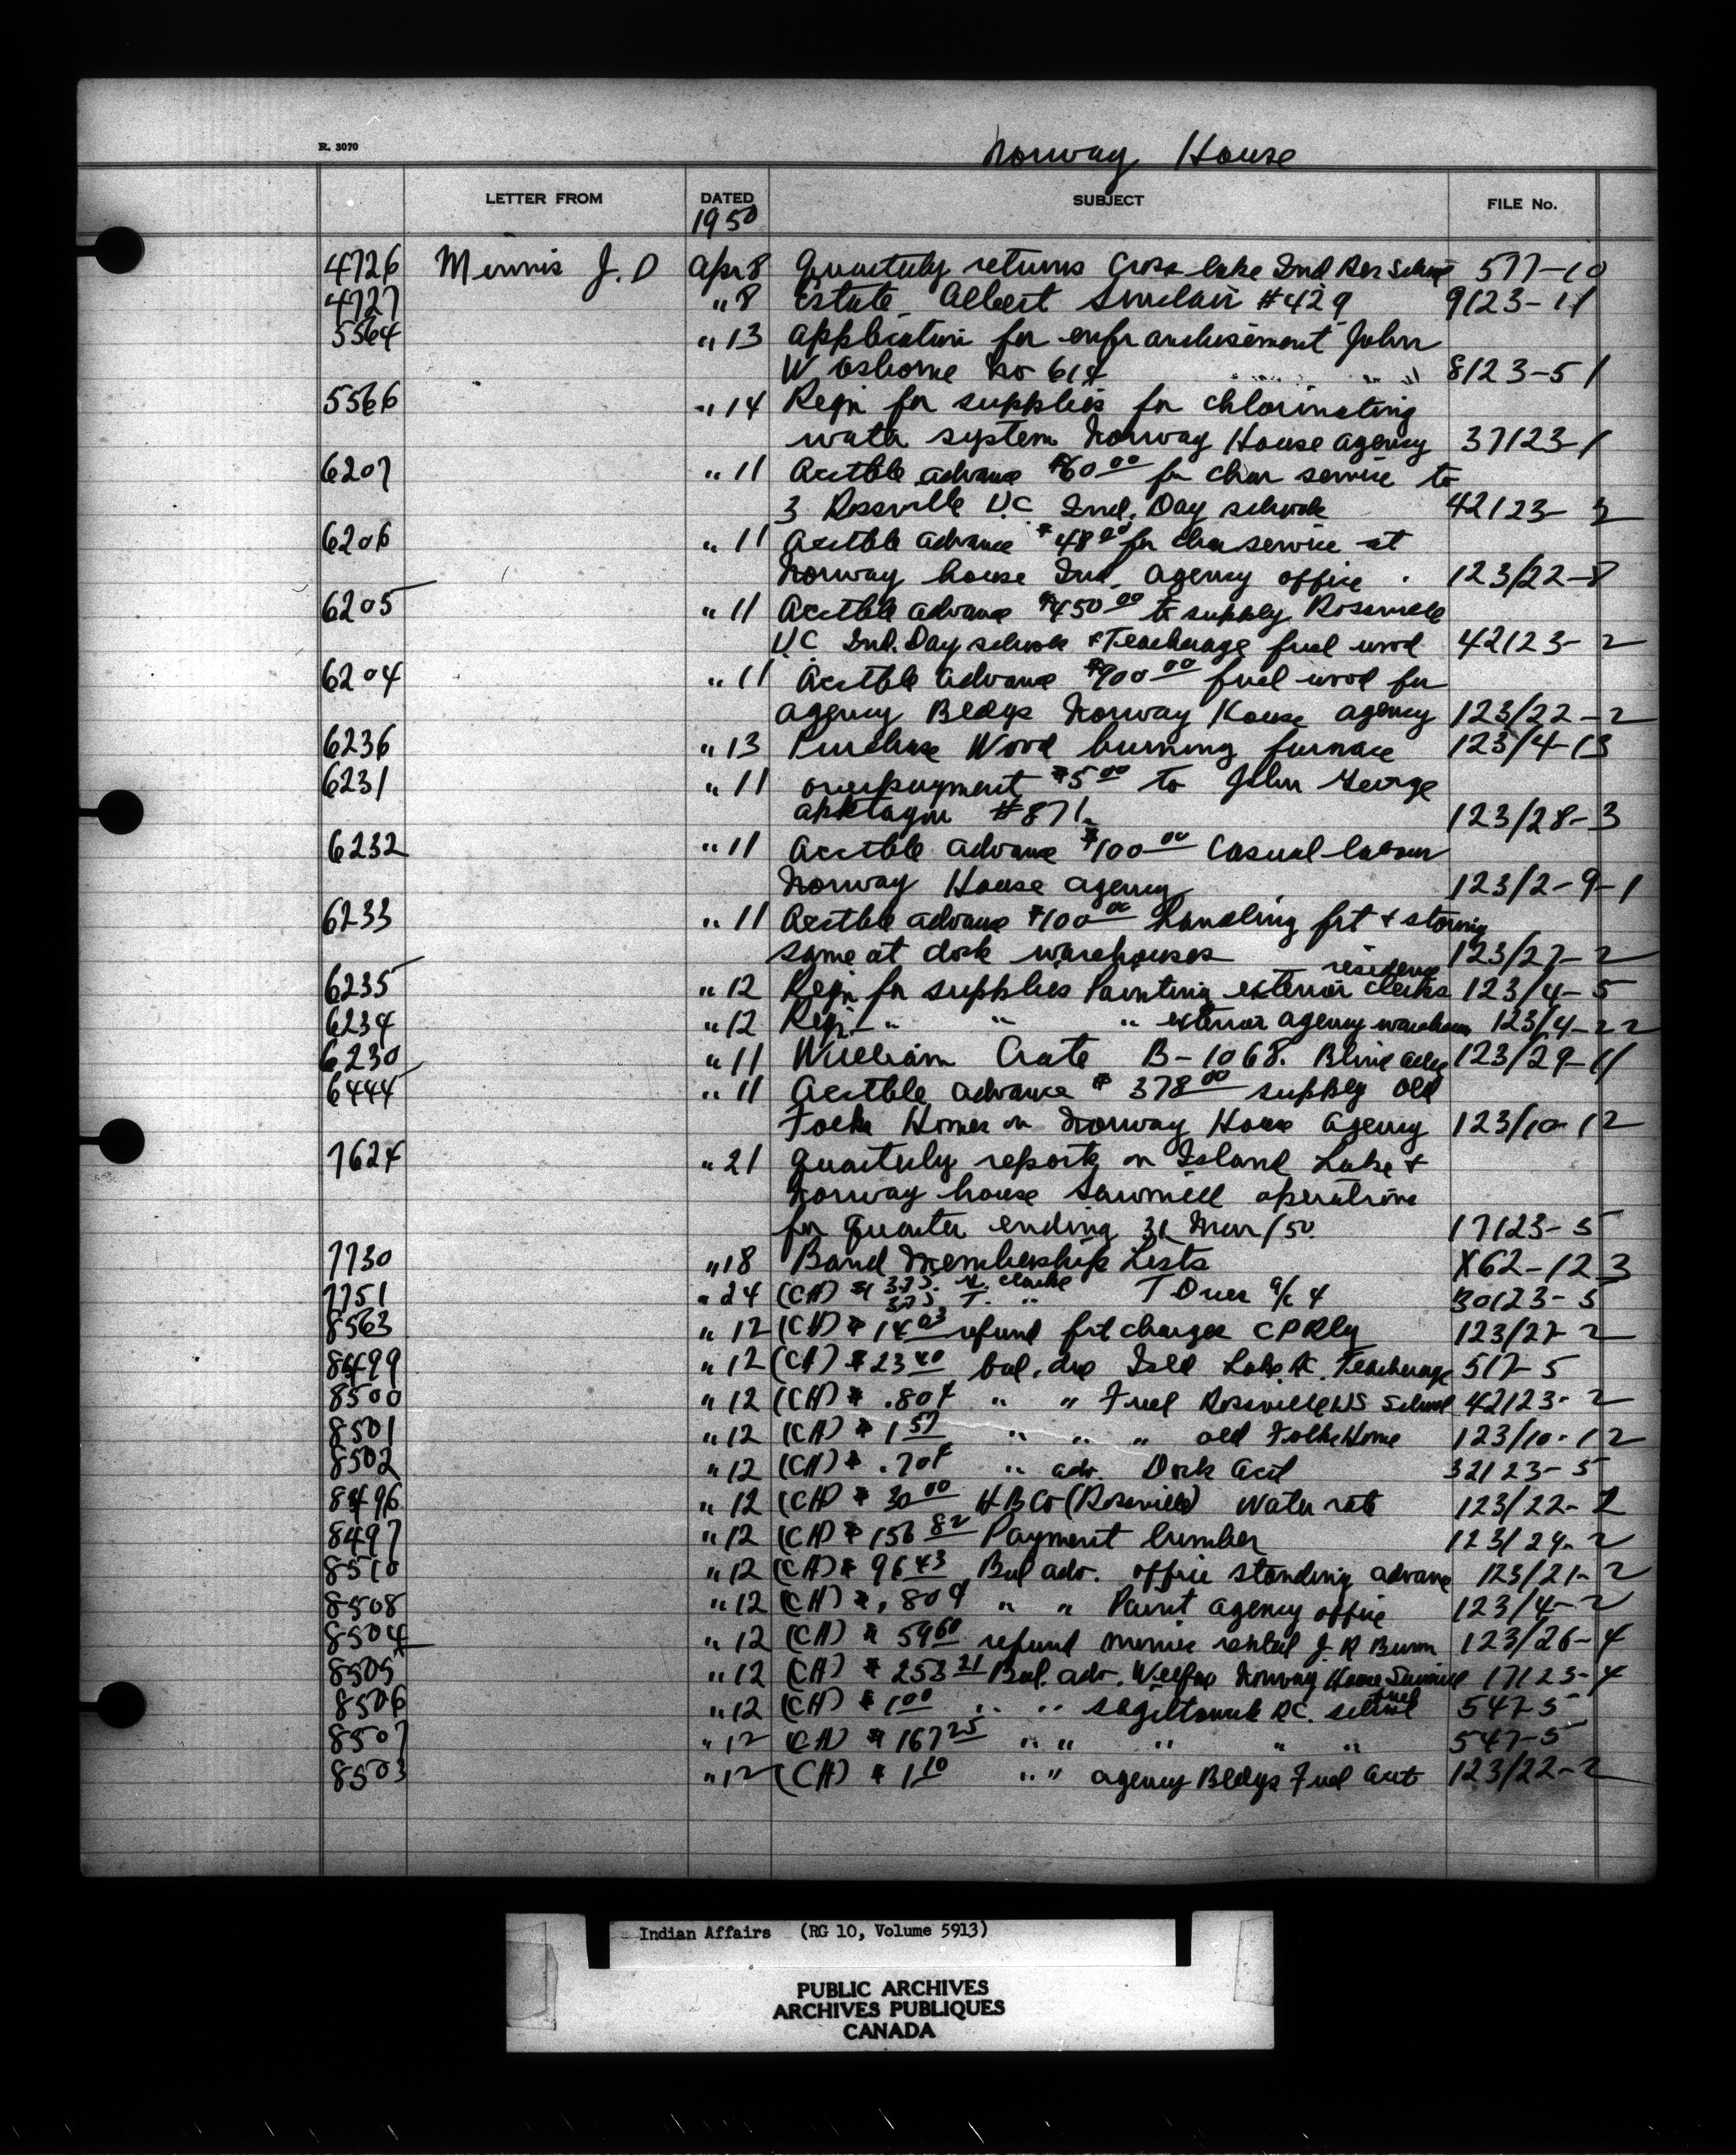 R. 3070
Norway House
LETTER FROM DATED SUBJECT FILE No.
1950
4726 Mennis J. D Apr 8 Quarterly returns Cross Lake Ind Res School 577-10
4727 " 8 Estate Albert Sinclair #429 9123-11
5564 " 13 Application for enfranchisement John
W Osborne No 614 8123-51
5566 " 14 Reqn for supplies for chlorinating
water system Norway House Agency 37123-1
6207 " 11 Acctble advance $60 00 for char service to
3 Rossville U.C. Ind. Day schools 42123-2
6206 " 11 Acctble advance $48 00 for char service at
Norway house Ind. Agency office 123/22-8
6205 " 11 Acctble advance $450 00 to supply Rossville
U.C. Ind. Day schools & Teacherage fuel wood 42123-2
6204 " 11 Acctble advance $900 00 fuel wood for
agency Bldgs Norway House Agency 123/22-2
6236 " 13 Purchase Wood burning furnace 123/4-13
6231 " 11 overpayment $5 00 to John George
#871 123/28-3
6232 " 11 Acctble advance $100 00 Casual labour
Norway House Agency 123/2-9-1
6233 " 11 Acctble advance $100 00 handling frt & storing
same at dock warehouses 123/27-2
residence
6235 " 12 Reqn for supplies Painting exterior clerks 123/4-5
6234 " 12 Reqn " " " exterior agency warehouse 123/4-22
6230 " 11 William Crate B-1068. Blind 123/29-11
6444 " 11 Acctble advance $ 378 00 supply Old
Folks Homes on Norway House Agency 123/10-12
7624 " 21 Quarterly reports on Island Lake &
Norway house Sawmill operations
for quarter ending 31 Mar/50. 17123-5
7730 " 18 Band Membership Lists X62-123
7751 " 24 (CH) $ 3.75. Clarke T Dues a/c 4 30123-5
3.75 T. "
8563 " 12 (CH) $ 14 03 refund frt charges CPRly 123/27-2
8499 " 12 (CH) $ 23 40 bal. adv Isld Lake Teacherage 517-5
8500 " 12 (CH) $ .80¢ " " Fuel Rossville School 42123-2
8501 " 12 (CH) $ 1 57 " " " old Folks Home 123/10-12
8502 " 12 (CH) $ .70¢ " adv. Dock Acct 32123-5
8496 " 12 (CH) $ 30 00 HBCo (Rossville) Water rate 123/22-2
8497 " 12 (CH) $ 156 82 Payment lumber 123/24-2
8510 " 12 (CH) $ 96 43 Bal adv. office standing advance 123/21-2
8508 " 12 (CH) $ .80¢ " " Paint agency office 123/4-2
8504 " 12 (CH) $ 59 60 refund rental J. R Bunn 123/26-4
8505 " 12 (CH) $ 253 21 Bal. adv. Welfare Norway House Sawmill 17123-4
8506 " 12 (CH) $ 1 00 " " R.C. school fuel 547-5
8507 " 12 (CH) $ 167 25 " " " " " 547-5
8503 " 12 (CH) $ 1 10 " " agency Bldgs Fuel Acct 123/22-2
Indian Affairs (RG 10, Volume 5913)
PUBLIC ARCHIVES
ARCHIVES PUBLIQUES
CANADA